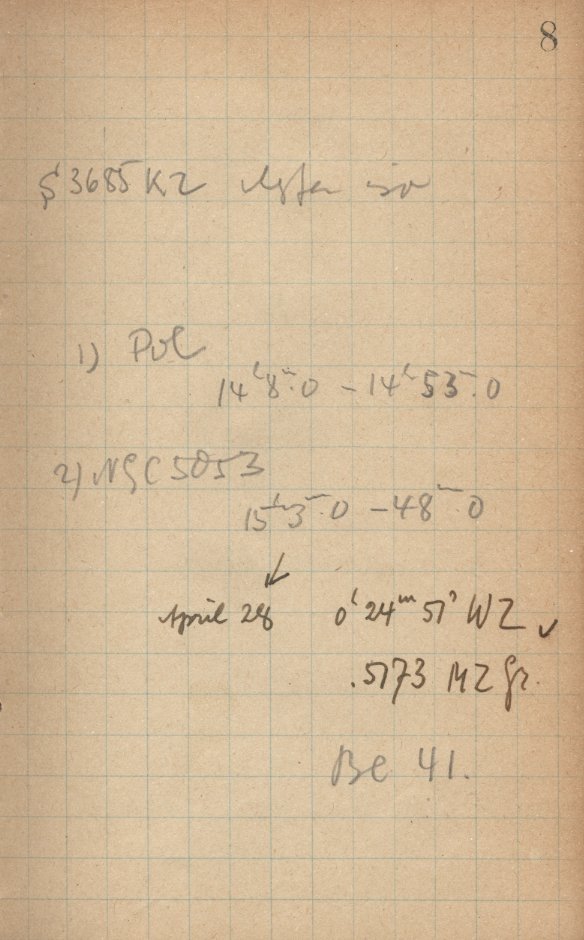 8
S 3685 KZ Agfa iso
1) Pol
14ʰ8ᵐ.0 – 14ʰ53ᵐ.0
2) NGC 5053
15ʰ3ᵐ.0 – 48ᵐ.0
April 28 0ʰ24ᵐ51ˢ WZ ✓
.5173 MZ Gr.
Be 41.